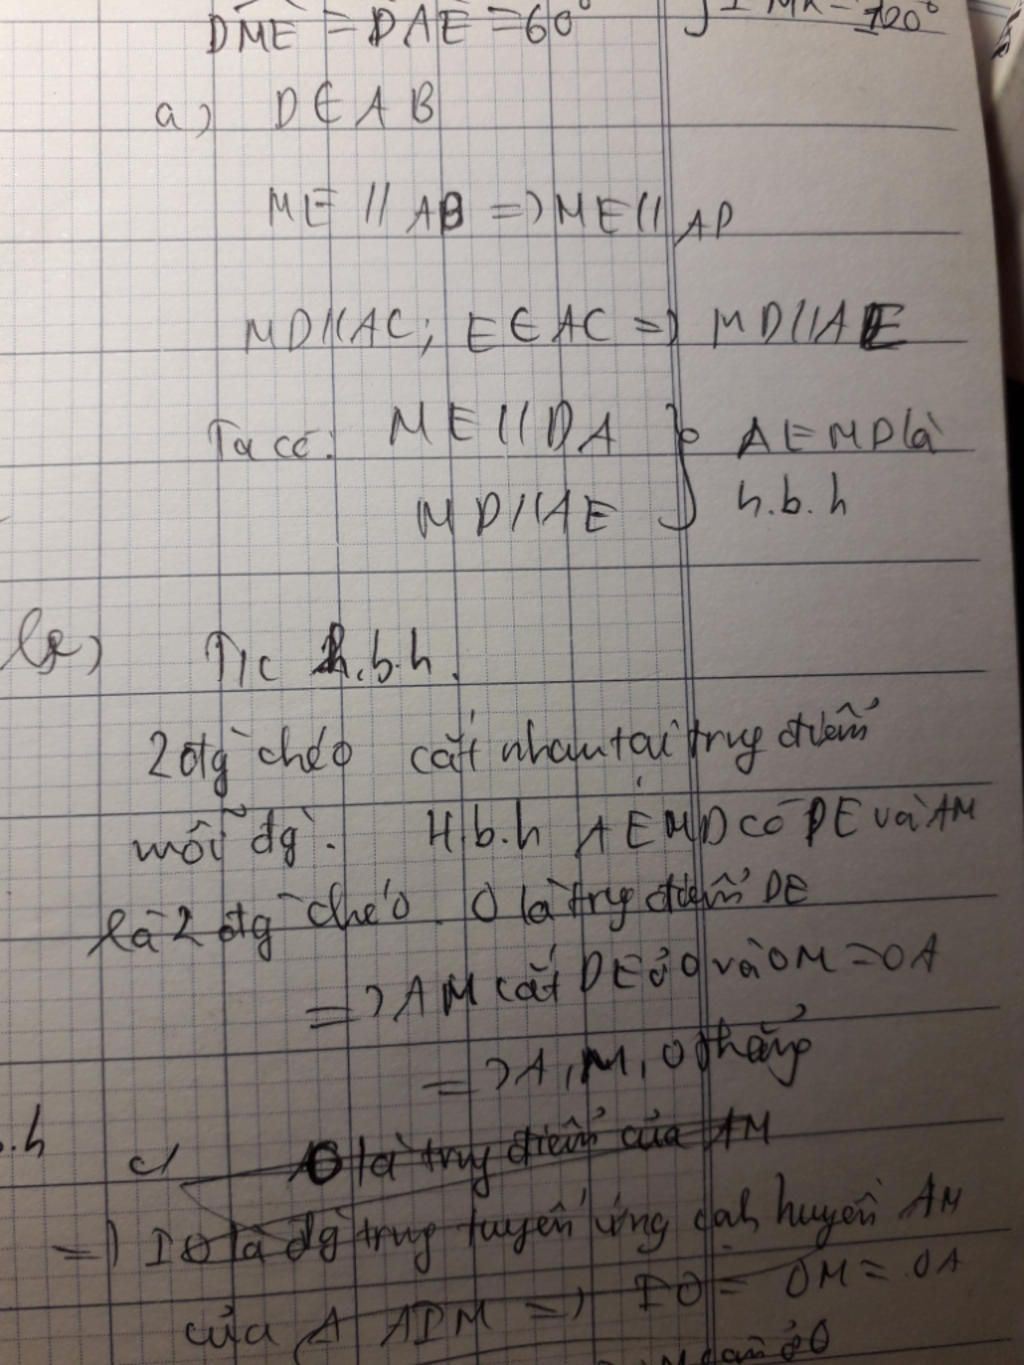 DME = DAE = 60°
120°
a) D ∈ AB
ME // AB => ME // AD
MD // AC; E ∈ AC => MD // AE
Ta có: ME // DA } AEMD là
MD // AE h.b.h
b) T/c h.b.h.
2 đg chéo cắt nhau tại trug điểm
mỗi đg. H.b.h AEMD có DE và AM
là 2 đg chéo. O là trug điểm DE
=> AM cắt DE ở O và OM = OA
=> A, M, O thẳng
.h
c) O là trug điểm của AM
=> IO là đg trug tuyến ứng cạh huyền AM
của Δ AIM => IO = OM = OA